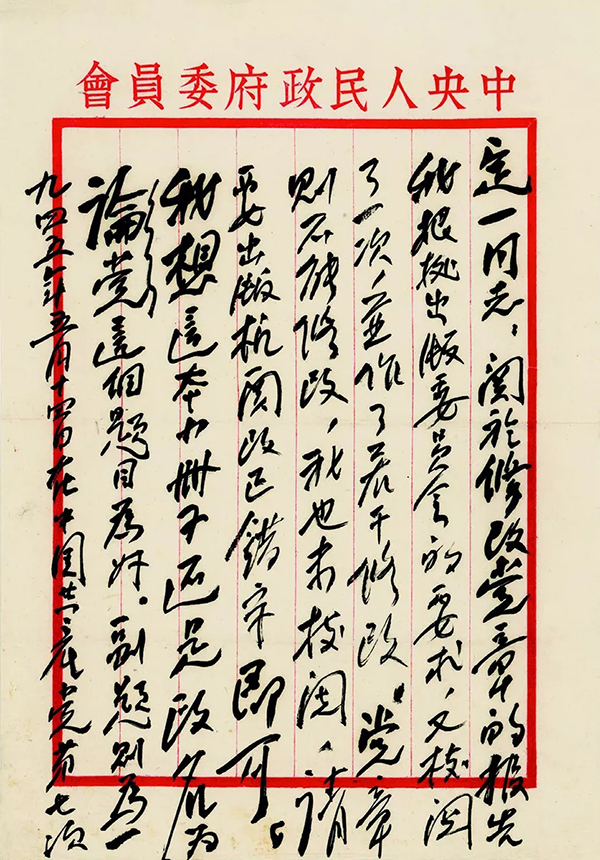 中央人民政府委員會
定一同志：関於修改党章的报告
我根据出版委员会的要求，又校閲
了一次，並作了若干修改。党章
則不能修改，我也未校閲，請
要出版机関改正錯字即可。
我想這本小冊子还是改名为
論党這個題目為好。副題則為一
九四五年五月十四日在中国共產党第七次